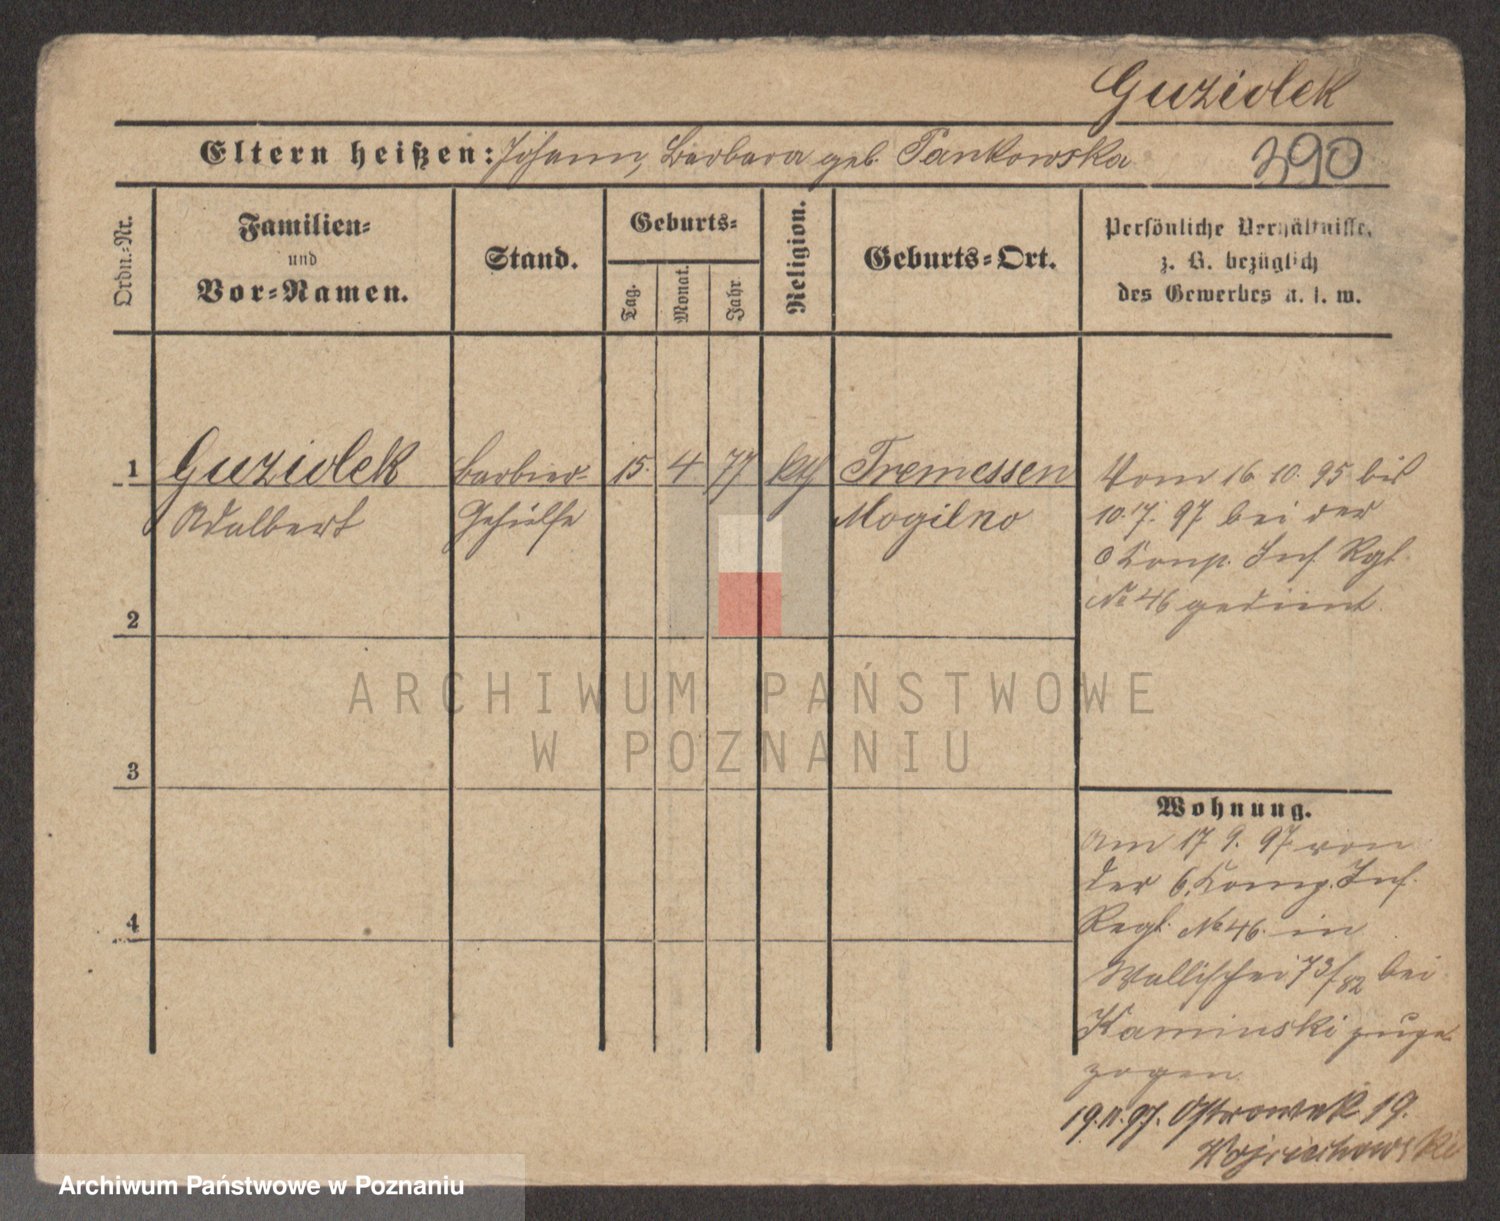 Guziolek
Eltern heißen: Johann, Barbara geb. Pankowska
390
Ordn.-Nr.
Familien-
und
Vor-Namen.
Stand.
Geburts-
Tag.
Monat.
Jahr.
Religion.
Geburts-Ort.
Persönliche Verhältnisse,
z. B. bezüglich
des Gewerbes u. s. w.
1
Guziolek
Adalbert
Barbier-
Gehülfe
15. 4 77
kth
Tremessen
Mogilno
Vom 16. 10. 95 bis
10. 7. 97 bei der
6 Comp. Inf. Rgt.
No 46 gedient.
2
3
4
Wohnung.
Am 17. 9. 97 von
der 6. Comp. Inf.
Regt. No 46. in
Wallischei 73/82 bei
Kaminski zuge-
zogen
19.11.97. Ostrowek 19.
Wojciechowski
ARCHIWUM PAŃSTWOWE
W POZNANIU
Archiwum Państwowe w Poznaniu